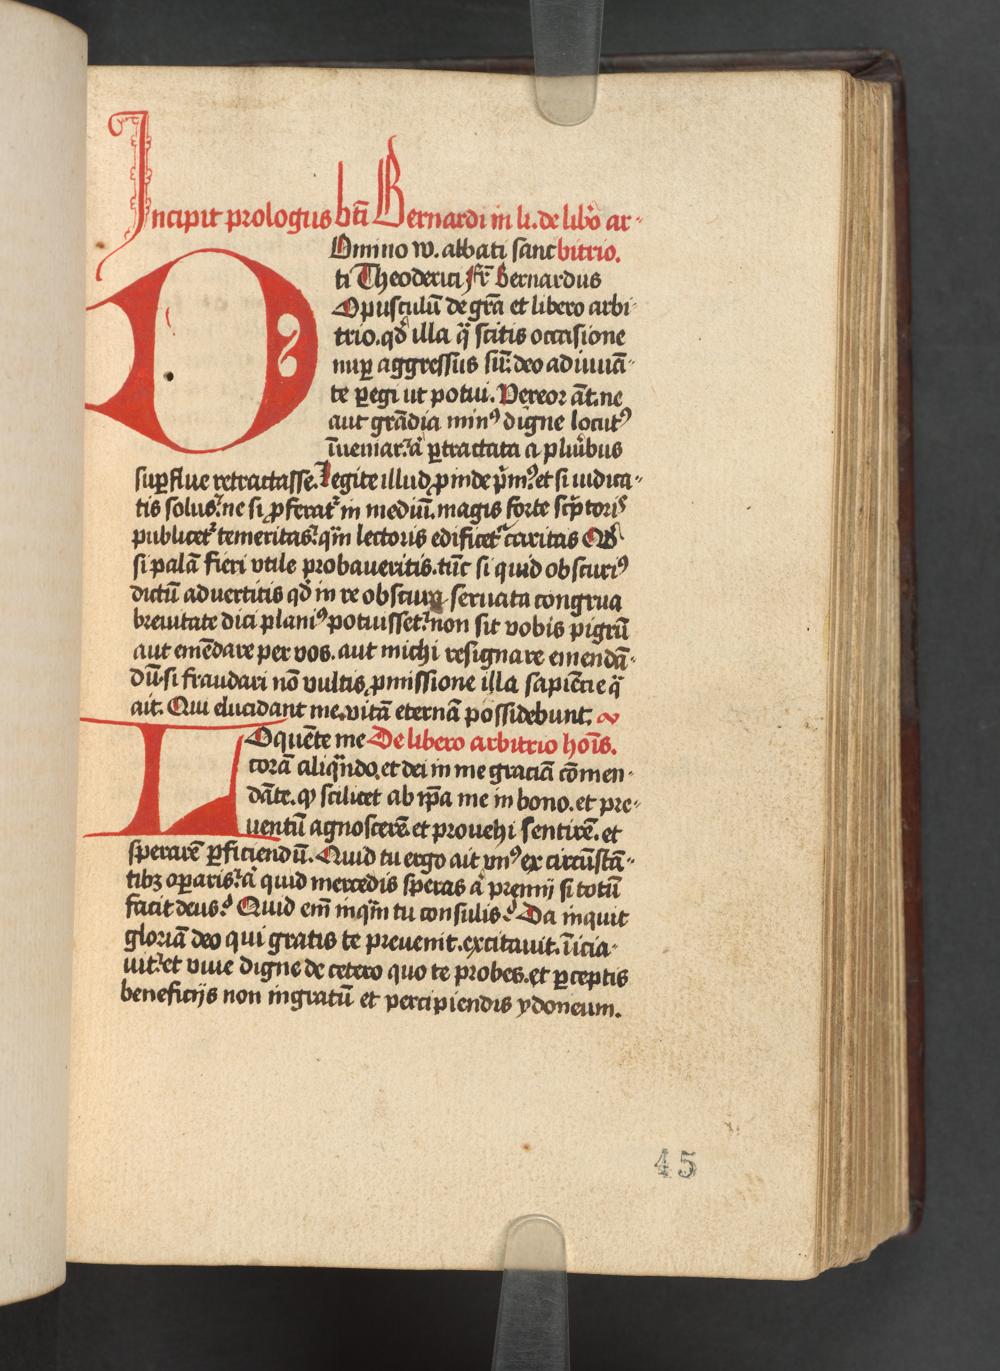 Incipit prologus bt̄i Bernardi in li. de lib̄o ar-
Omino w. abbati sanc bitrio.
ti Theoderici Fr̄ Bernardus
Opusculū de gr̄a et libero arbi-
trio. qd̓ illa q̄ scitis occasione
nuꝑ aggressus sū: deo adiuuā-
te ꝑegi ut potui. Vereor āt. ne
aut grādia minꝰ digne locutꝰ
īueniar: ā ꝑtractata a pluribus
suꝑflue retractasse. Legite illud ꝓinde p̄mꝰ. et si iudica-
tis solus. ne si ꝓferat᷑ in mediū. magis forte sc̄ptoris
publicet᷑ temeritas: qm̄ lectoris edificet᷑ caritas Qd̓
si palā fieri vtile probaueritis. tūc si quid obscuriꝰ
dictū aduertitis qd̓ in re obscura seruata congrua
breuitate dici planiꝰ potuisset: non sit vobis pigrū
aut emēdare per vos. aut michi resignare emendā-
dū. si fraudari nō vultis ꝓmissione illa sapiētie q̄
ait. Qui elucidant me. vitā eternā possidebunt.
LOquēte me De libero arbitrio hoīs.
corā aliqn̄do. et dei in me graciā cōmen-
dāte. ꝙ scilicet ab ip̄a me in bono. et pre-
uentū agnoscerē. et prouehi sentirē. et
sperarē ꝑficiendū. Quid tu ergo ait vnꝰ ex circūstā-
tibꝫ oꝑaris: ā quid mercedis speras ā premij si totū
facit deus? Quid em̄ inqm̄ tu consulis? Da inquit
gloriā deo qui gratis te preuenit. excitauit. īicia-
uit: et viue digne de cetero quo te probes. et ꝑceptis
beneficijs non ingratū et percipiendis ydoneum.
45